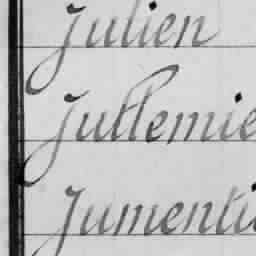 Julien
Jullemie
Jumenti